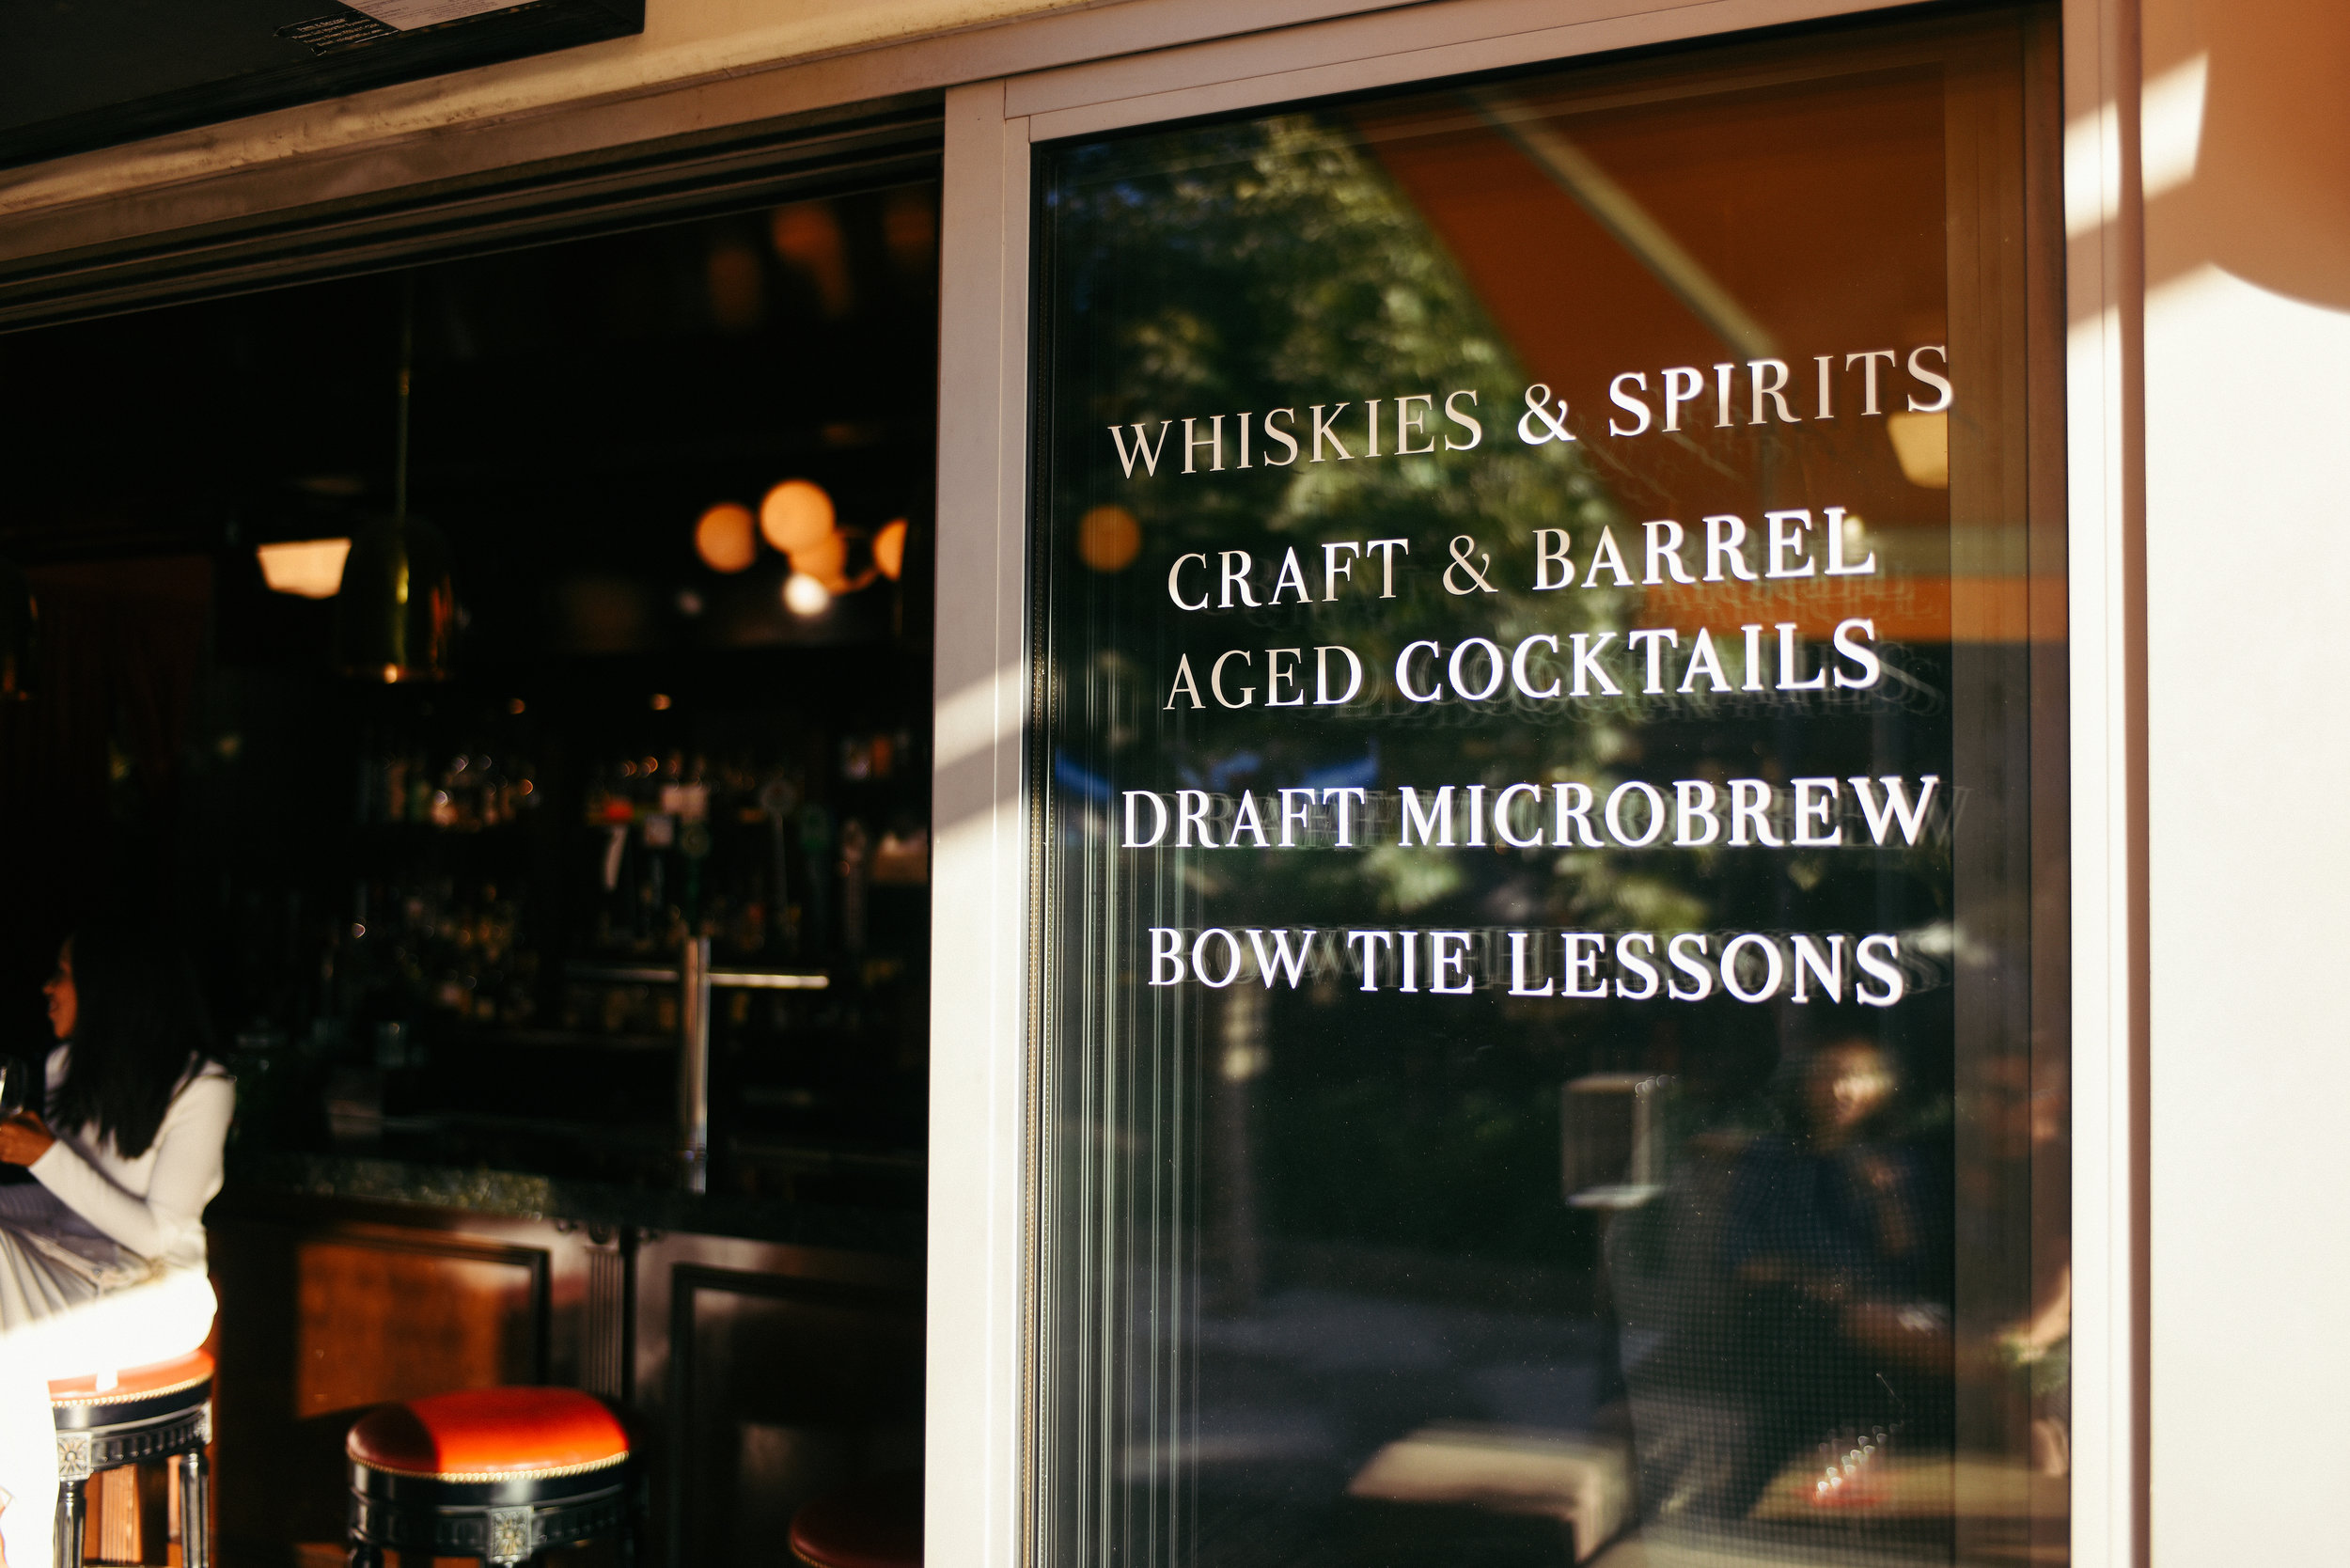 WHISKIES & SPIRITS
CRAFT & BARREL
AGED COCKTAILS
DRAFT MICROBREW
BOW TIE LESSONS